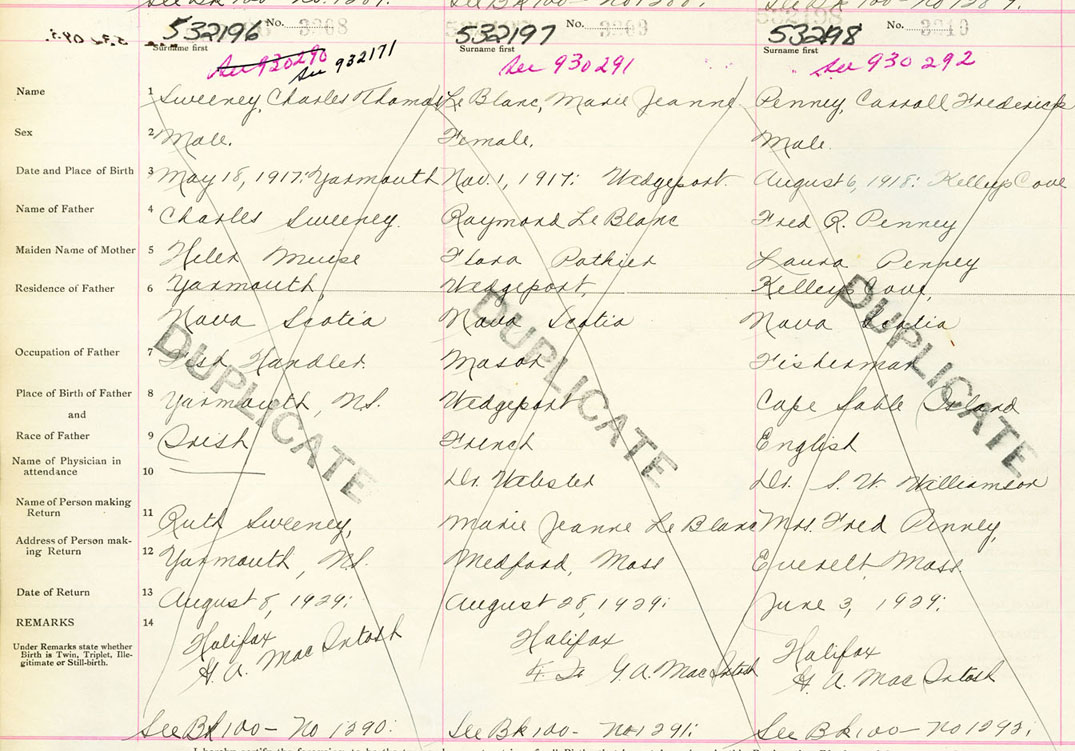 532196 No. 3208
532197 No. 3209
532198 No. 3210
Surname first
Surname first
Surname first
See 930290
See 932171
See 930291
See 930292
Name 1 Sweeney, Charles Thomas Le Blanc, Marie Jeanne Penney, Carroll Frederick
Sex 2 Male. Female. Male
Date and Place of Birth 3 May 18, 1917: Yarmouth Nov. 1, 1917: Wedgeport. August 6, 1918: Kelleys Cove
Name of Father 4 Charles Sweeney. Raymond Le Blanc Fred R. Penney
Maiden Name of Mother 5 Helen Muise Flora Pothier Laura Penney
Residence of Father 6 Yarmouth, Wedgeport, Kelleys Cove,
Nova Scotia Nova Scotia Nova Scotia
Occupation of Father 7 Fish Handler. Mason Fisherman
Place of Birth of Father 8 Yarmouth, NS. Wedgeport Cape Sable Island
and
Race of Father 9 Irish French English
Name of Physician in
attendance 10 Dr. Webster Dr. S. W. Williamson
Name of Person making
Return 11 Ruth Sweeney, Marie Jeanne Le Blanc Mrs. Fred Penney,
Address of Person mak-
ing Return 12 Yarmouth, NS. Medford, Mass Everett Mass.
Date of Return 13 August 8, 1929: August 28, 1929: June 3, 1929:
REMARKS 14 Halifax Halifax Halifax
Under Remarks state whether
Birth is Twin, Triplet, Ille-
gitimate or Still-birth.
G. A. MacIntosh G. A. MacIntosh G. A. MacIntosh
DUPLICATE
DUPLICATE
DUPLICATE
See Bk 100 - No 1290: See Bk 100 - No 1291: See Bk 100 - No 1292: